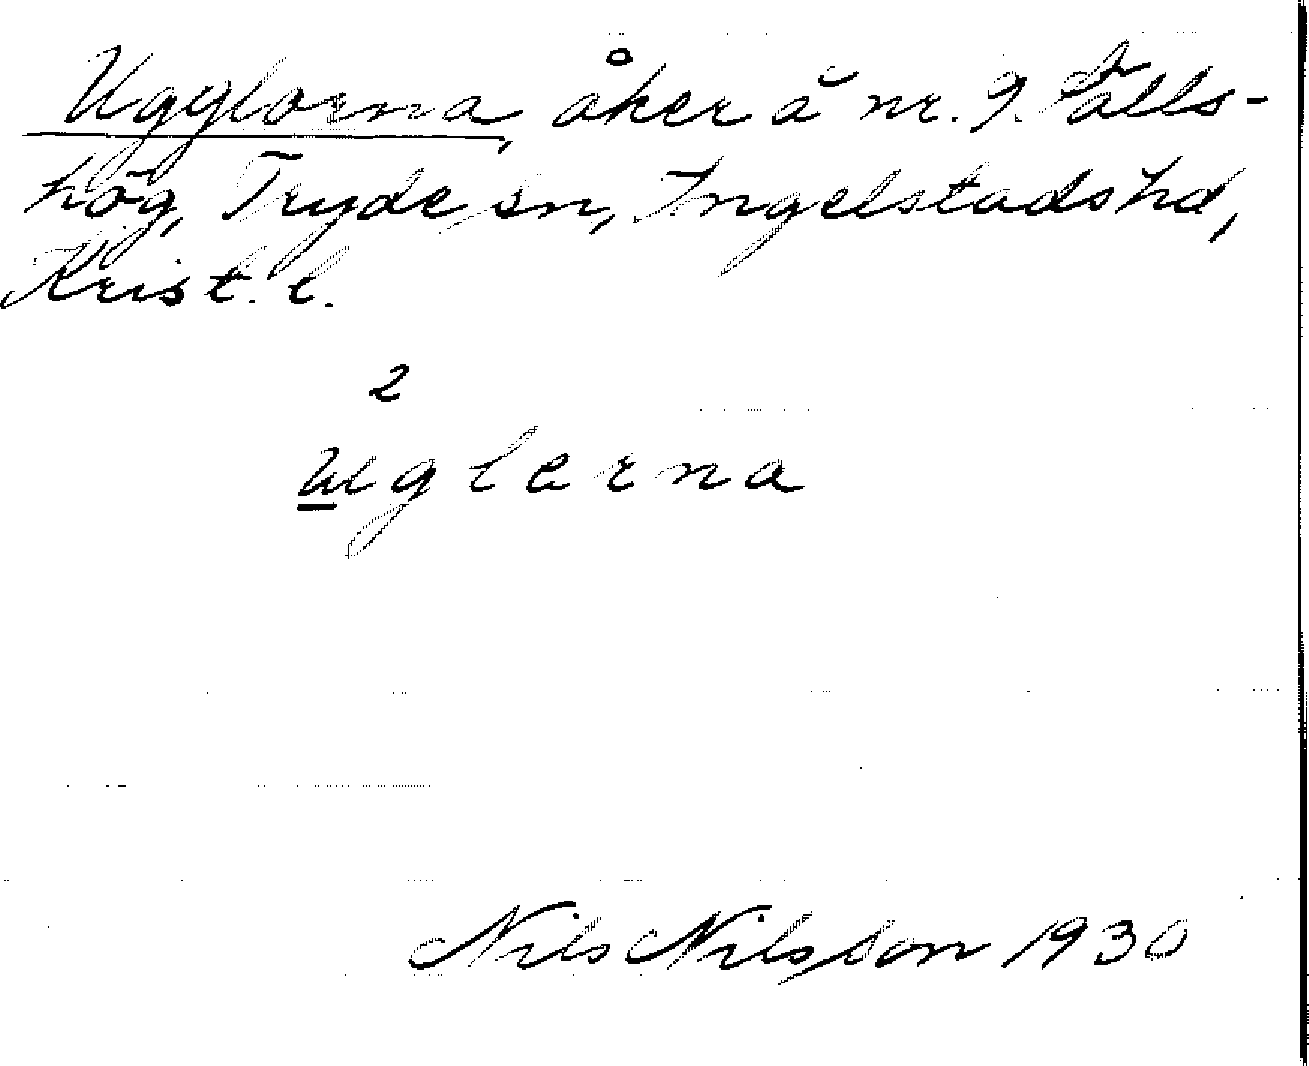 Ugglorna, åker å nr. 9. Fälls-
hög, Tryde sn, Ingelstads hd,
Krist. l.
2
uglerna
Nils Nilsson 1930